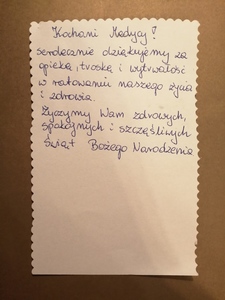 Kochani Medycy!
serdecznie dziękujemy za
opiekę, troskę i wytrwałość
w ratowaniu naszego życia
i zdrowia.
Życzymy Wam zdrowych,
spokojnych i szczęśliwych
Świąt Bożego Narodzenia